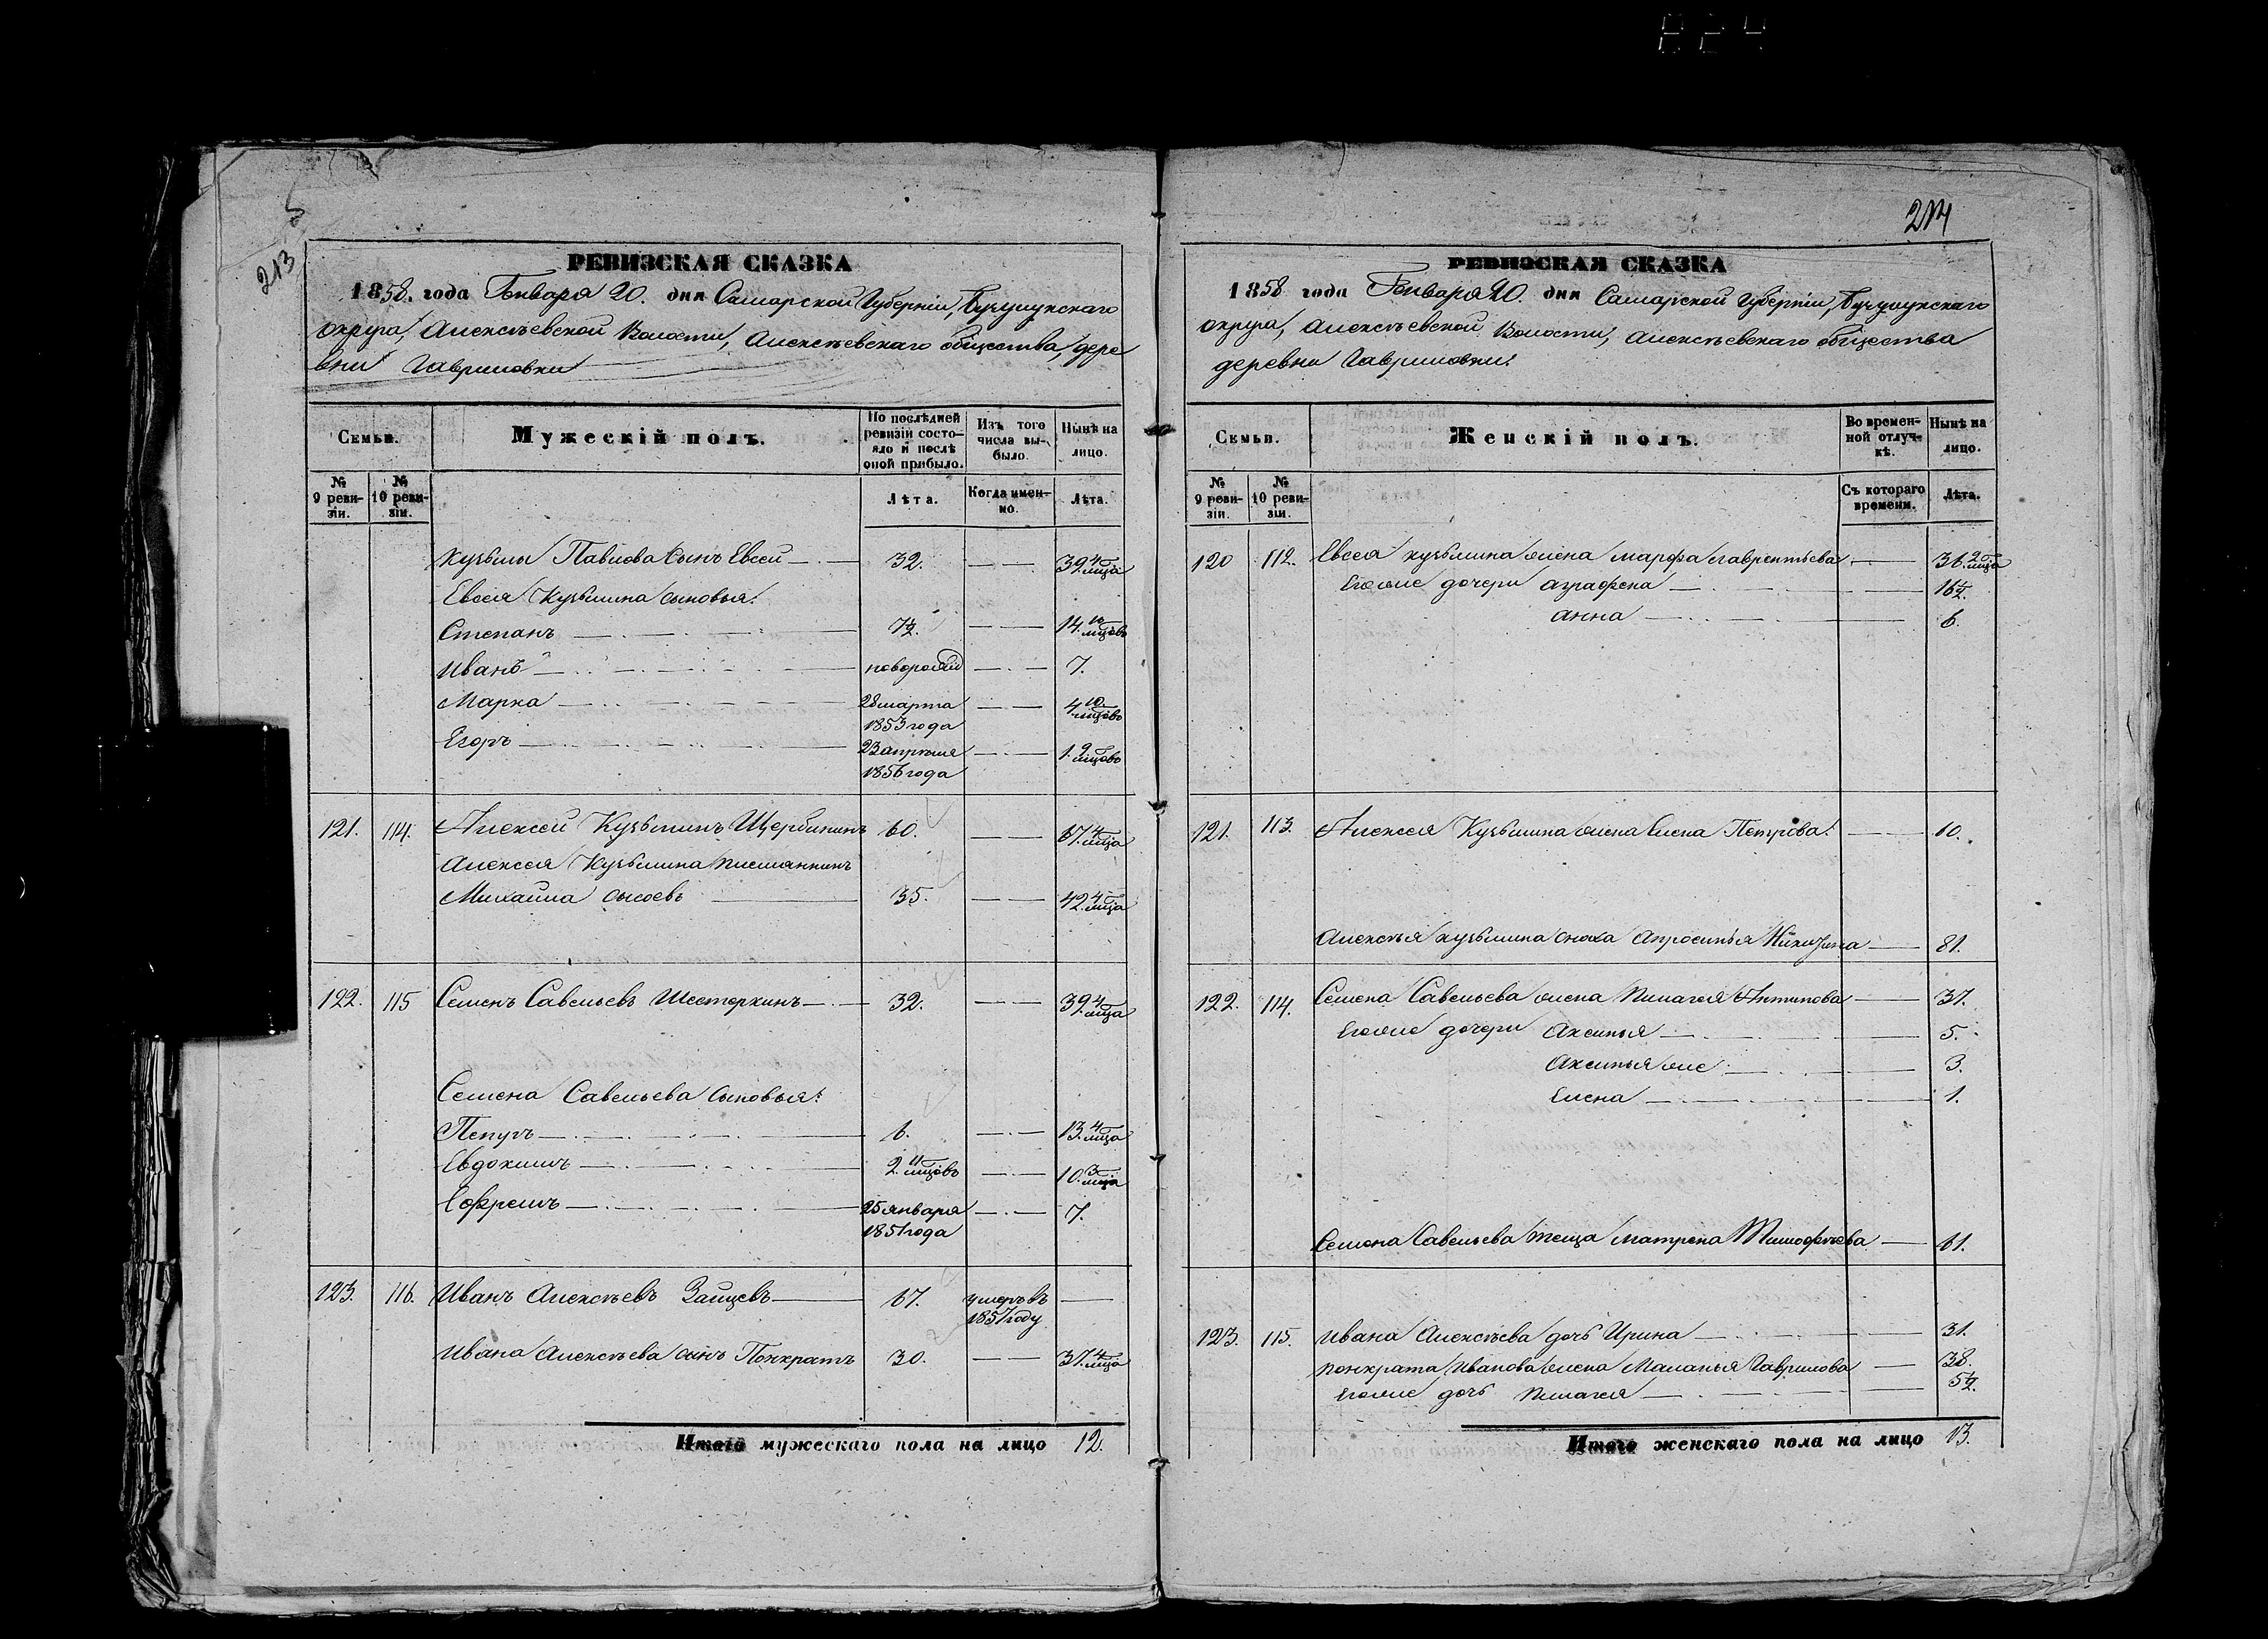 824
5
213
РЕВИЗСКАЯ СКАЗКА
1858. года Генваря 20. дня Самарской Губерніи, Бузулукскаго
округа, Алексѣевской Волости, Алексѣевскаго общества, дере
вни Гавриловки
Семьи.
Мужескій полъ.
По послѣдней ревизіи состо-яло и послѣ оной прибыло.
Изъ того числа вы-было.
Нынѣ на лицо.
№ 9 реви-зіи.
№ 10 реви-зіи.
Лѣта.
Когда имен-но.
Лѣта.
Кузьмы Павлова сынъ Евсей 32. 39. 4 мца
Евсея Кузьмина сыновья:
Степанъ 7½. 14. 10 мцовъ
Иванъ новорожд 7.
Марка 28 марта 1853 года 4 10 мцовъ
Егоръ 23 апрѣля 1856 года 1. 9 мцовъ
121. 114. Алексей Кузьминъ Щербининъ 60. 67. 4 мца
Алексея Кузьмина племянникъ
Михайла Сысоевъ 35. 42. 4 мца
122. 115 Семенъ Савельевъ Шестеркинъ 32. 39. 4 мца
Семена Савельева сыновья:
Пепугъ 6. 13. 4 мца
Евдокимъ 2. 11 мцовъ 10. 3 мца
Ефремъ 25 января 1851 года 7.
123. 116. Иванъ Алексѣевъ Зайцевъ 67. умеръ въ 1857 году
Ивана Алексѣева сынъ Понкратъ 30. 37. 4 мца
Итого мужескаго пола на лицо 12.
214
РЕВИЗСКАЯ СКАЗКА
1858 года Генваря 20. дня Самарской Губерніи, Бузулукскаго
округа, Алексѣевской Волости, Алексѣевскаго общества
деревни Гавриловки.
Семьи.
Женскій полъ.
Во времен-ной отлуч-кѣ.
Нынѣ на лицо.
№ 9 реви-зіи.
№ 10 реви-зіи.
Съ котораго времени.
Лѣта.
120 112. Евсея Кузьмина жена Марфа Лаврентьева 36. 2 мца
Его же дочери Аграфена 16½.
Анна 6.
121. 113. Алексея Кузьмина жена Елена Петрова. 60.
Алексѣя Кузьмина сноха Апросинья Никитина 81.
122. 114. Семена Савельева жена Пилагея Антипова 37.
Его же дочери Аксинья 5.
Аксинья же 3.
Елена 1.
Семена Савельева теща Матрена Тимофѣева 61.
123. 115. Ивана Алексѣева дочь Ирина 31.
Понкрата Иванова жена Маланья Гаврилова 38.
Его же дочь Пилагея 5½.
Итого женскаго пола на лицо 13.